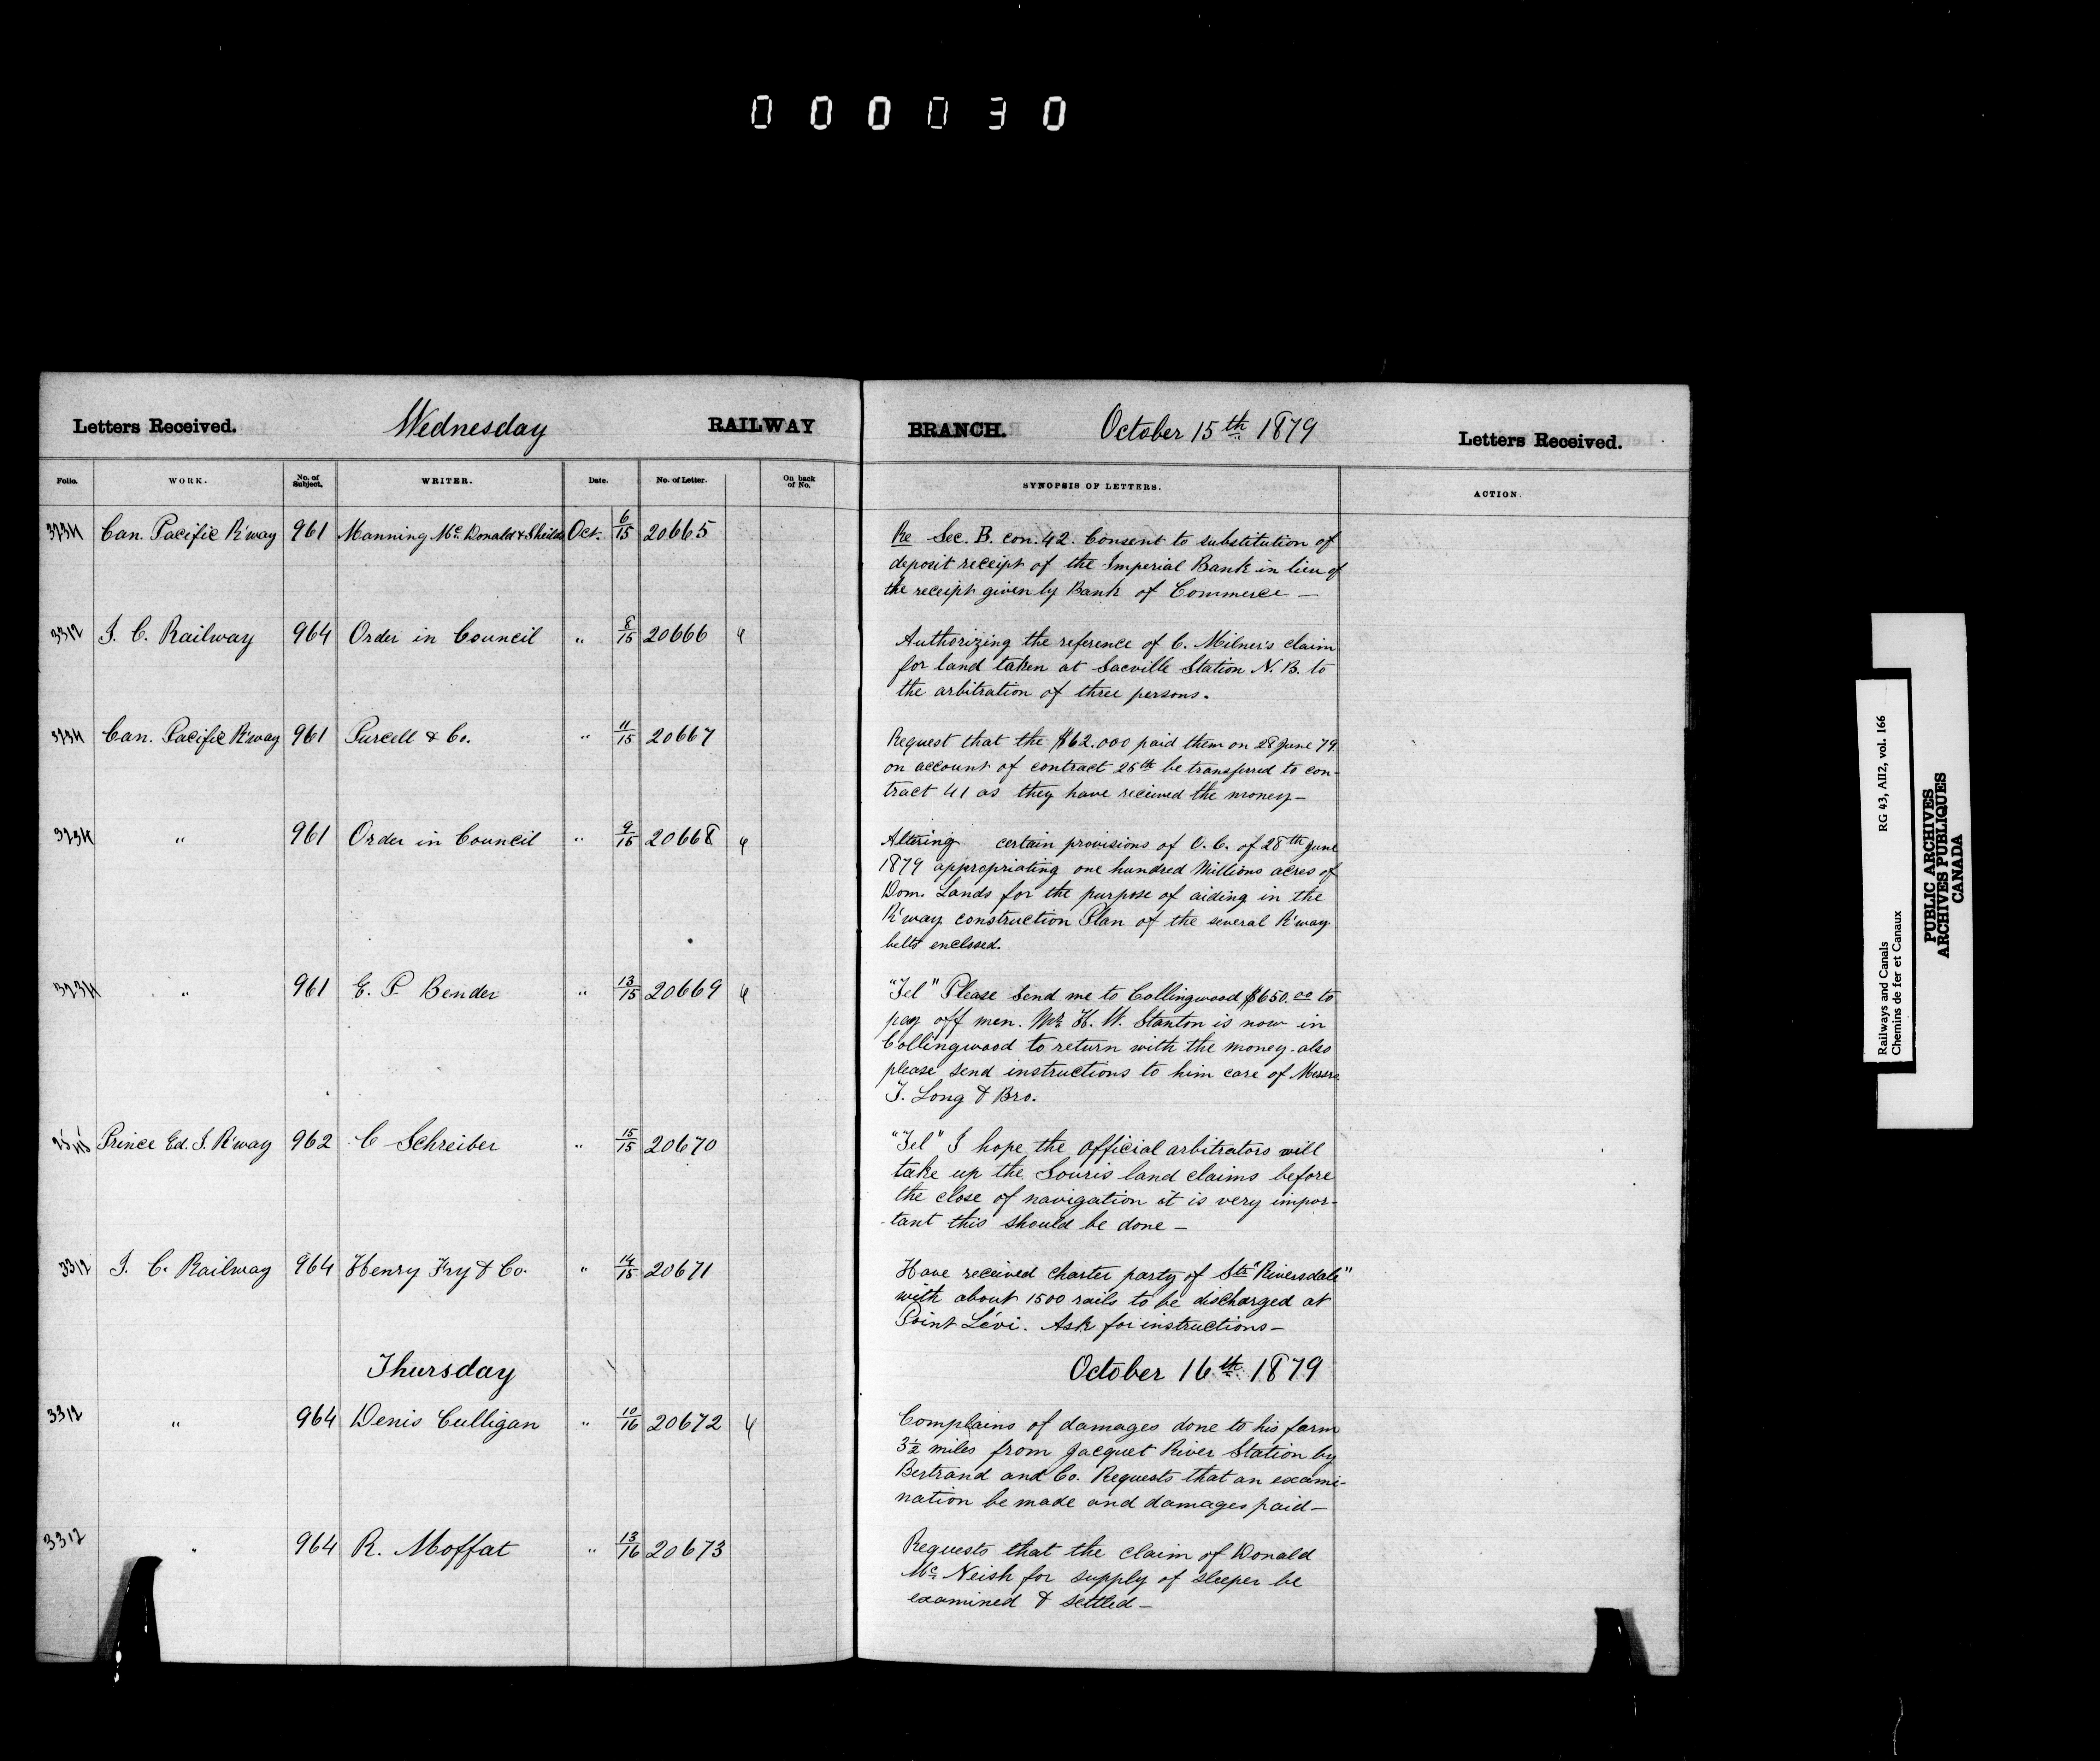 000030
Letters Received. Wednesday RAILWAY BRANCH. October 15th 1879 Letters Received.
Folio. WORK. No. of Subject. WRITER. Date. No. of Letter. On back of No. SYNOPSIS OF LETTERS. ACTION.
Can. Pacific R'way 961 Manning McDonald & Sheilds Oct. 6/15 20665
Re Sec. B. con. 42. Consent to substitution of
deposit receipt of the Imperial Bank in lieu of
the receipt given by Bank of Commerce —
3312 I. C. Railway 964 Order in Council " 8/15 20666
Authorizing the reference of C. Milner's claim
for land taken at Sacville Station N. B. to
the arbitration of three persons.
Can. Pacific R'way 961 Purcell & Co. " 11/15 20667
Request that the $62.000 paid them on 28 June 79
on account of contract 25th be transferred to con-
tract 41 as they have received the money —
" 961 Order in Council " 9/15 20668
Altering certain provisions of O. C. of 28th June
1879 appropriating one hundred Millions acres of
Dom. Lands for the purpose of aiding in the
R'way construction Plan of the several R'way
belts enclosed.
" 961 E. P. Bender " 13/15 20669
"Tel" Please send me to Collingwood $650.00 to
pay off men. Mr. H. W. Stanton is now in
Collingwood to return with the money - also
please send instructions to him care of Messrs
T. Long & Bro.
Prince Ed. I. R'way 962 C Schreiber " 15/15 20670
"Tel" I hope the official arbitrators will
take up the Souris land claims before
the close of navigation it is very impor-
-tant this should be done —
3312 I. C. Railway 964 Henry Fry & Co. " 14/15 20671
Have received charter party of Str "Riversdale"
with about 1500 rails to be discharged at
Point Lévi. Ask for instructions —
Thursday October 16th 1879
3312 " 964 Denis Culligan " 10/16 20672
Complains of damages done to his farm
3½ miles from Jacquet River Station by
Bertrand and Co. Requests that an exami-
nation be made and damages paid —
3312 " 964 R. Moffat " 13/16 20673
Requests that the claim of Donald
McNeish for supply of sleeper be
examined & settled —
Railways and Canals RG 43, AII2, vol. 166
Chemins de fer et Canaux
PUBLIC ARCHIVES
ARCHIVES PUBLIQUES
CANADA